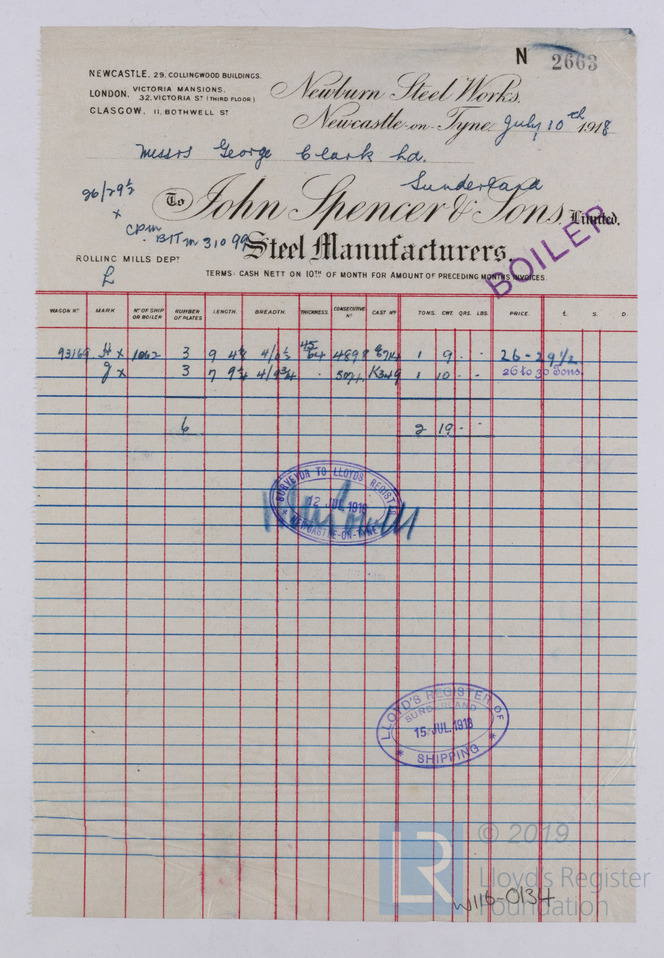 N 2663
NEWCASTLE, 29, COLLINGWOOD BUILDINGS.
LONDON, VICTORIA MANSIONS, 32, VICTORIA ST (THIRD FLOOR)
GLASGOW, 11, BOTHWELL ST
Newburn Steel Works,
Newcastle-on-Tyne, July 10th 1918
Messrs George Clark Ld.
Sunderland
26/29½
x
To John Spencer & Sons, Limited,
BOILER
Steel Manufacturers,
ROLLING MILLS DEPT
TERMS: CASH NETT ON 10TH OF MONTH FOR AMOUNT OF PRECEDING MONTHS INVOICES.
WAGON NO MARK NO OF SHIP OR BOILER NUMBER OF PLATES LENGTH. BREADTH. THICKNESS. CONSECUTIVE NO CAST NO TONS. CWT. QRS. LBS. PRICE. £ S. D.
93169 x 1062 3 9 4/0½ 45/64 4898 1 9 - - 26 - 29½
x 3 7 4/9¾ 5071 K349 1 10 - - 26 to 30 Tons.
6 2 19 - -
SURVEYOR TO LLOYDS REGISTER
12 JUL 1918
NEWCASTLE-ON-TYNE
LLOYD'S REGISTER OF
SUNDERLAND
15 JUL. 1918
SHIPPING
LR
© 2019
Lloyd's Register
Foundation
W116-0134